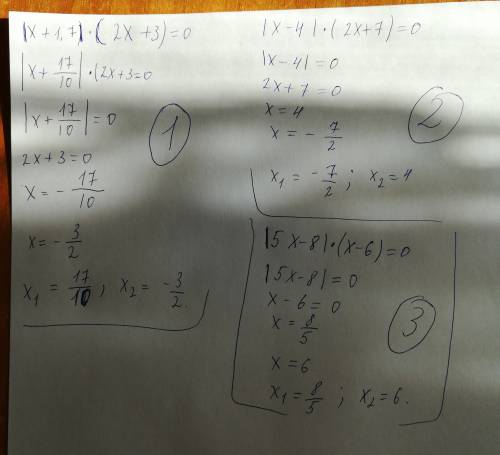 |x+1,7|·(2x+3)=0
|x+17/10|·(2x+3=0
|x+17/10|=0
2x+3=0
x=-17/10
x=-3/2
x₁=17/10; x₂=-3/2.
1
|x-4|·(2x+7)=0
|x-4|=0
2x+7=0
x=4
x=-7/2
x₁=-7/2; x₂=4
2
|5x-8|·(x-6)=0
|5x-8|=0
x-6=0
x=8/5
x=6
x₁=8/5; x₂=6.
3